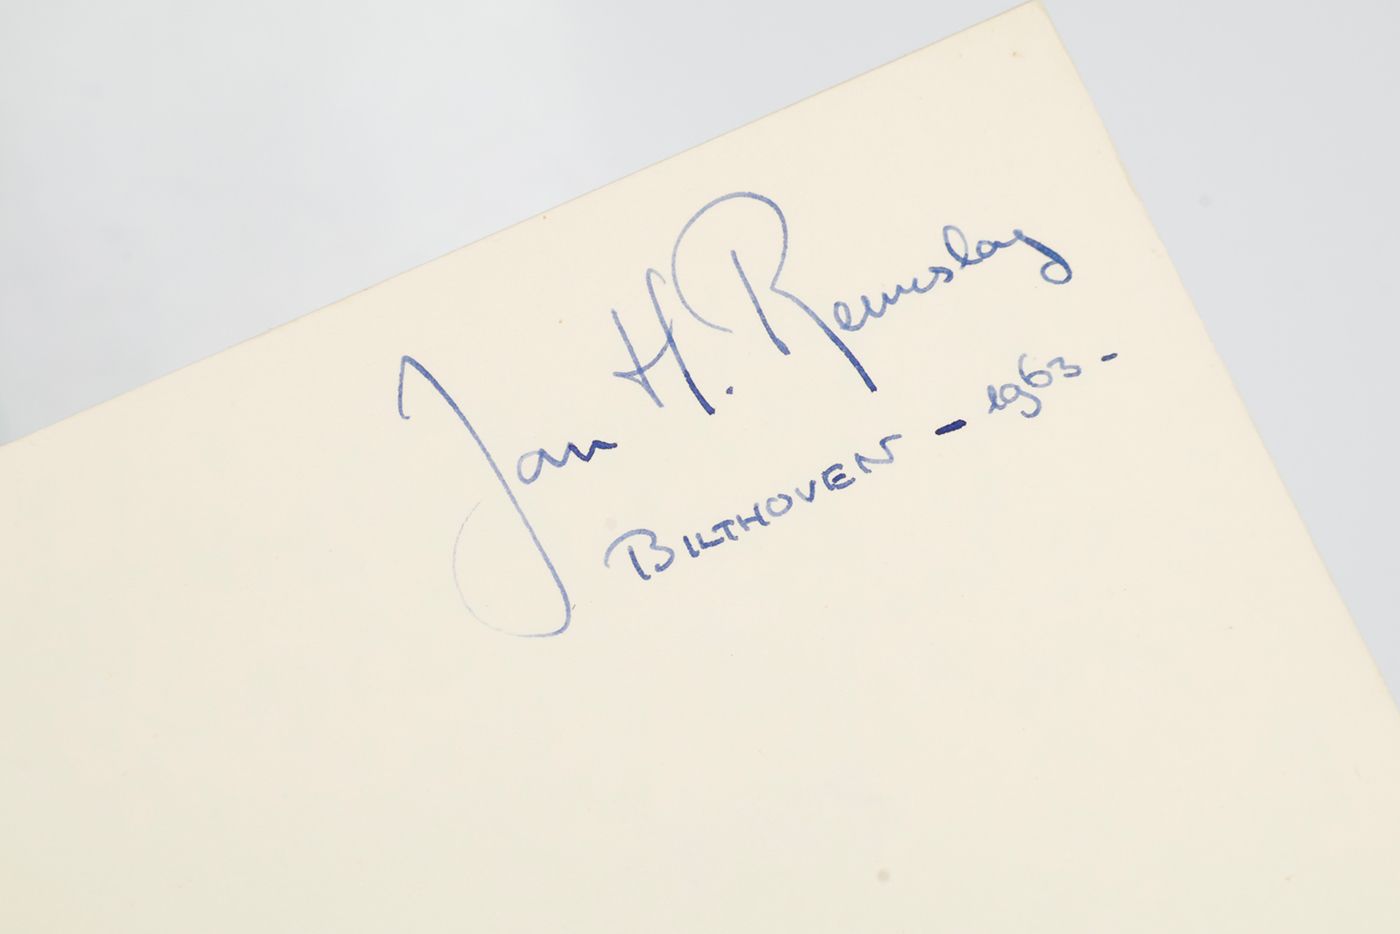 Jan H. Remeslag
BILTHOVEN - 1963 -